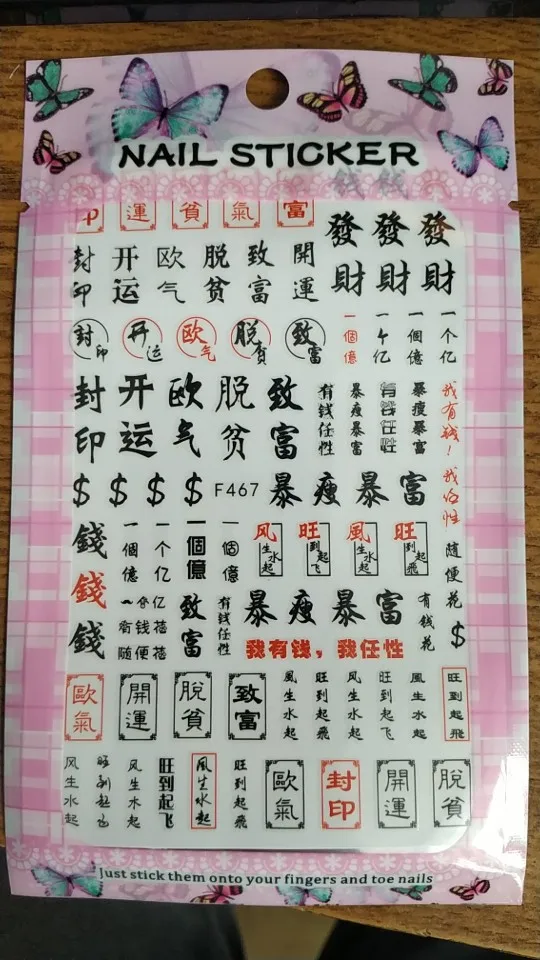 NAIL STICKER
印 運 貧 氣 富
發財 發財 發財
封印 开运 欧气 脱贫 致富 開運
封印 开运 欧气 脱貧 致富
一個億 一个亿 一個億 一个亿
封印 开运 欧气 脱贫 致富
有钱任性 暴瘦暴富 有钱任性 暴瘦暴富
我有钱! 我任性
$ $ $ $ F467 暴 瘦 暴 富
錢 錢 錢
一個億 一个亿 一個億 一個億
风生水起 旺到起飞 風生水起 旺到起飛
随便花 $
致富 有钱任性 暴 瘦 暴 富 有钱花
我有钱，我任性
歐氣 開運 脫貧 致富
風生水起 旺到起飛 风生水起 旺到起飞 風生水起 旺到起飛
风生水起 旺到起飞 风生水起 旺到起飞 風生水起 旺到起飛
歐氣 封印 開運 脫貧
Just stick them onto your fingers and toe nails